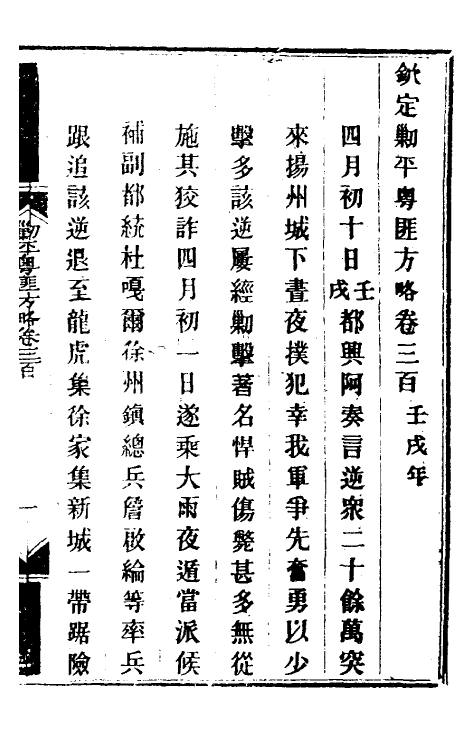 欽定勦平粵匪方略卷三百 壬戌年
四月初十日壬戌都興阿奏言逆衆二十餘萬突
來揚州城下晝夜撲犯幸我軍爭先奮勇以少
擊多該逆屢經勦擊著名悍賊傷斃甚多無從
施其狡詐四月初一日遂乘大雨夜遁當派候
補副都統杜嘎爾徐州鎮總兵詹啟綸等率兵
跟追該逆退至龍虎集徐家集新城一帶踞險
勦平粵匪方略卷三百
一